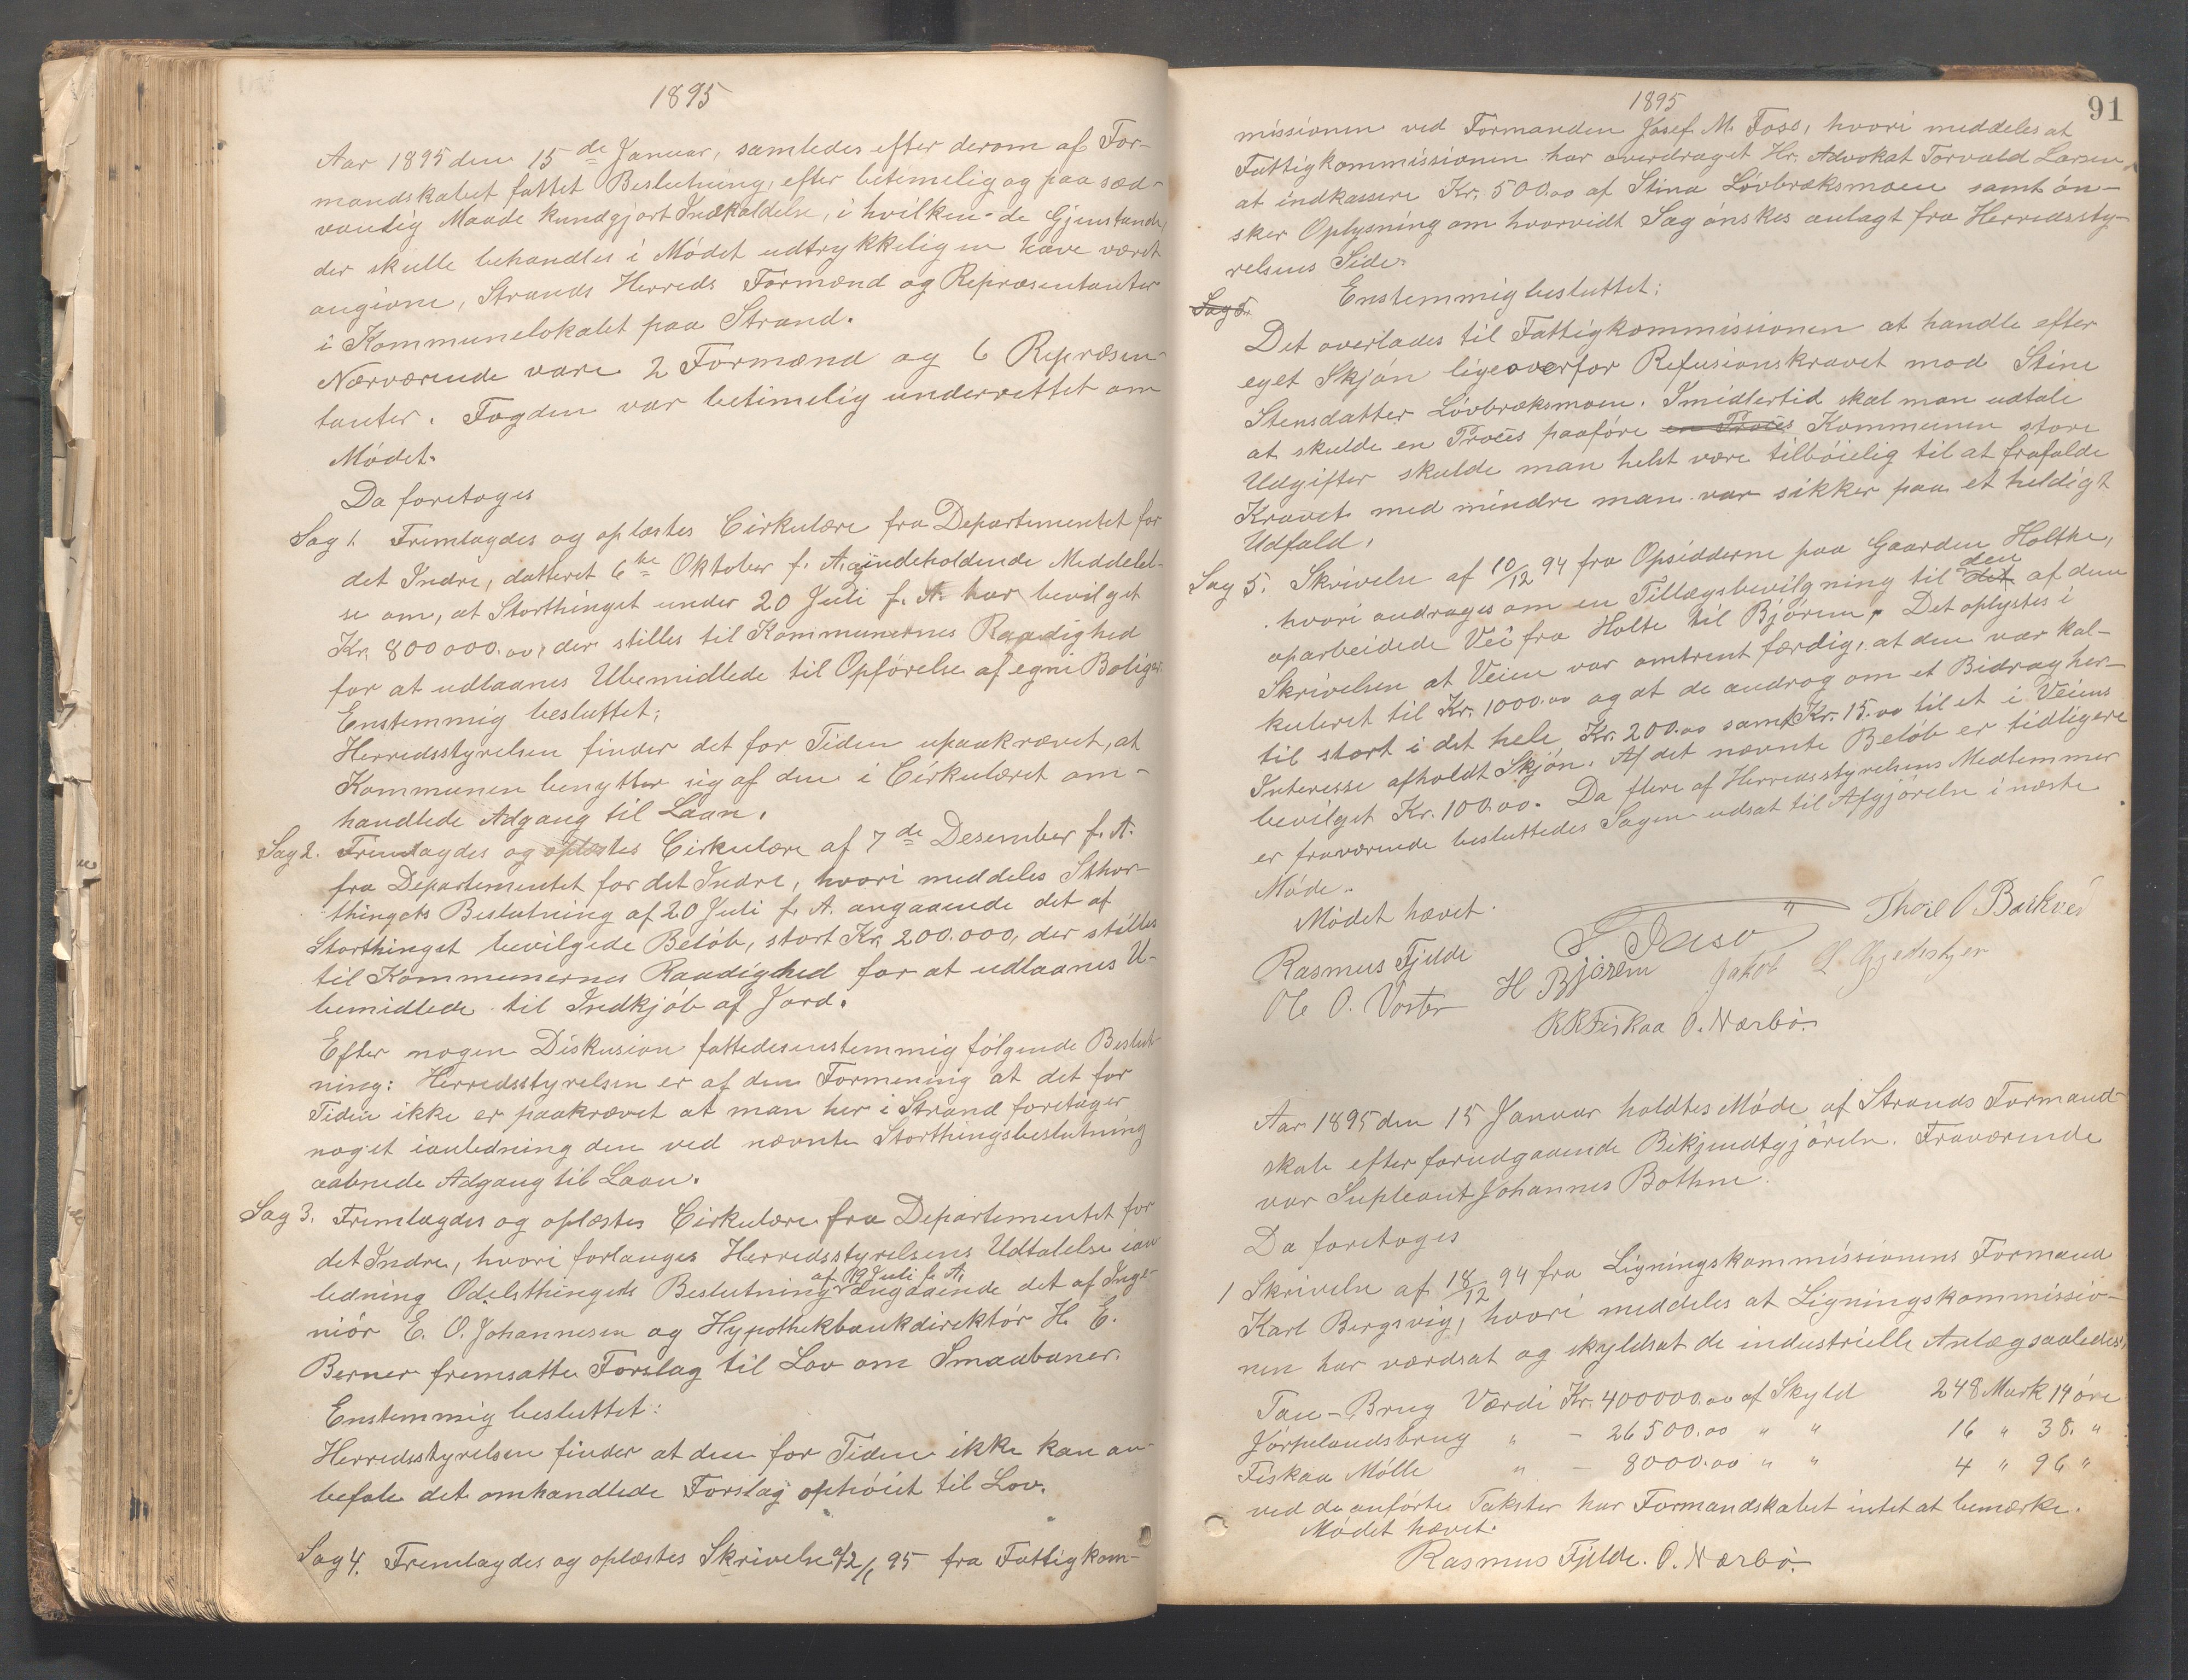 1895
Aar 1895 den 15de Januar, samledes efter derom af For-
mandskabet fattet Beslutning, efter betimelig og paa sæd-
vanlig Maade kundgjort Indkaldelse, i hvilken de Gjenstande,
der skulle behandles i Mødet udtrykkeligen have været
angivne, Strands Herreds Formænd og Repræsentanter
i Kommunelokalet paa Strand.
Nærværende vare 2 Formænd og 6 Repræsen-
tanter. Fogden var betimelig underrettet om
Mødet.
Da foretoges
Sag 1. Fremlagdes og oplæstes Cirkulære fra Departementet for
det Indre, datteret 6te Oktober f. A. indeholdende Meddelel-
se om, at Storthinget under 20 Juli f. A. har bevilget
Kr. 800000.00, der stilles til Kommunernes Raadighed
for at udlaanes Ubemidlede til Opførelse af egne Boliger.
Enstemmig besluttet:
Herredsstyrelsen finder det for Tiden upaakrævet, at
Kommunen benytter sig af den i Cirkulæret om-
handlede Adgang til Laan.
Sag 2. Fremlagdes og oplæstes Cirkulære af 7de Desember f. A.
fra Departementet for det Indre, hvori meddeles Sthor-
thingets Beslutning af 20 Juli f. A. angaaende det af
Storthinget bevilgede Beløb, stort Kr. 200.000, der stilles
til Kommunernes Raadighed for at udlaanes U-
bemidlede til Indkjøb af Jord.
Efter nogen Diskusion fattedes enstemmig følgende Beslut-
ning: Herredsstyrelsen er af den Formening at det for
Tiden ikke er paakrævet at man her i Strand foretager
noget ianledning den ved nævnte Storthingsbeslutning
aabnede Adgang til Laan.
Sag 3. Fremlagdes og oplæstes Cirkulære fra Departementet for
det Indre, hvori forlanges Herredsstyrelsens Udtalelse ian
ledning Odelsthingets Beslutning af 19 Juli f. A. angaaende det af Inge-
niør E. O. Johannesen og Hypothekbankdirektør H. E.
Berner fremsatte Forslag til Lov om Smaabaner.
Enstemmig besluttet:
Herredsstyrelsen finder at den for Tiden ikke kan an-
befale det omhandlede Forslag ophøiet til Lov.
Sag 4. Fremlagdes og oplæstes Skrivelse af 2/1 95 fra Fattigkom-
1895
91
missionen ved Formanden Josef M. Foss, hvori meddeles at
Fattigkommissionen har overdraget Hr. Advokat Torvald Larsen
at indkassere Kr. 500.00 af Stina Løvbræksmoen samt øn-
sker Oplysning om hvorvidt Sag ønskes anlagt fra Herredssty-
relsens Side.
Enstemmig besluttet:
Sag 5.
Det overlades til Fattigkommissionen at handle efter
eget Skjøn ligeoverfor Refusionskravet mod Stine
Stensdatter Løvbræksmoen. Imidlertid skal man udtale
at skulde en Proces paaføre en Proces Kommunen store
Udgifter skulde man helst være tilbøielig til at frafalde
Kravet med mindre man var sikker paa et heldigt
Udfald.
Sag 5. Skrivelse af 10/12 94 fra Opsidderne paa Gaarden Holthe,
hvori andrages om en Tillægsbevilgning til det den af dem
oparbeidede Vei fra Holte til Bjøren. Det oplystes i
Skrivelsen at Veien var omtrent færdig, at den var kal-
kuleret til Kr. 1000.00 og at de androg om et Bidrag her-
til stort i det hele Kr. 200.00 samt Kr. 15.00 til et i Veiens
Interesse afholdt Skjøn. Af det nævnte Beløb er tidligere
bevilget Kr. 100.00. Da flere af Herredsstyrelsens Medlemmer
er fraværende besluttedes Sagen udsat til Afgjørelse i næste
Møde.
Mødet hævet.
Rasmus Fjelde
Ole O. Voster H Bjøren Jakob
RRFiskaa O. Nærbø.
Aar 1895 den 15 Januar holdtes Møde af Strands Formand-
skab efter forudgaaende Bikjendtgjørelse. Fraværende
var Supleant Johannes Bothne.
Da foretoges
1 Skrivelse af 18/12 94 fra Ligningskommissionens Formand
Karl Bergsvig, hvori meddeles at Ligningskommissio-
nen har værdsat og skyldsat de industrielle Anlæg saaledes:
Tau-Brug Værdi Kr. 400000.00 af Skyld 248 Mark 14 øre
Jørpelandsbrug " - 26500.00 " " 16 " 38 "
Fiskaa Mølle " - 8000.00 " " 4 " 96 "
ved de anførte Takster har Formandskabet intet at bemærke.
Mødet hævet.
Rasmus Fjelde. O. Nærbø.